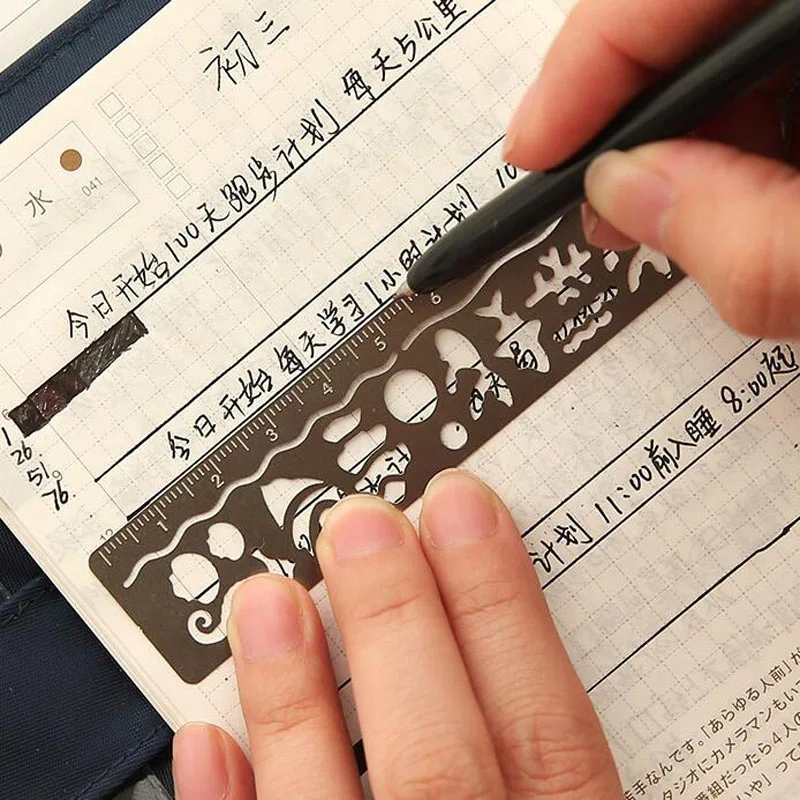 初三
水
041
今日开始100天跑步计划 每天5公里
今日开始每天学习1小时计划 10
计划 11:00前入睡 8:00起
1
26
51
76
12
1 2 3 4 5 6
手なんです。「あらゆる人前」が
タジオにカメラマンもい
番組だったら4人の